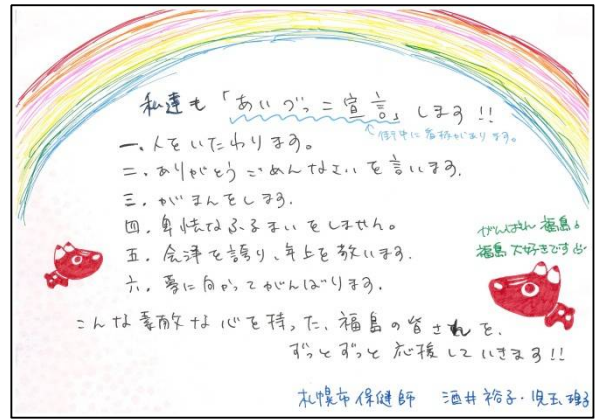 私達も「あいづっこ宣言」します!!
街中に看板があります。
一、人をいたわります。
二、ありがとう ごめんなさいを言います。
三、がまんをします。
四、卑怯なふるまいをしません。
五、会津を誇り、年上を敬います。
六、夢に向かってがんばります。
がんばろう 福島♪
福島 大好きです
こんな素敵な心を持った、福島の皆さんを、
ずっとずっと応援していきます!!
札幌市 保健師 酒井 裕子・児玉